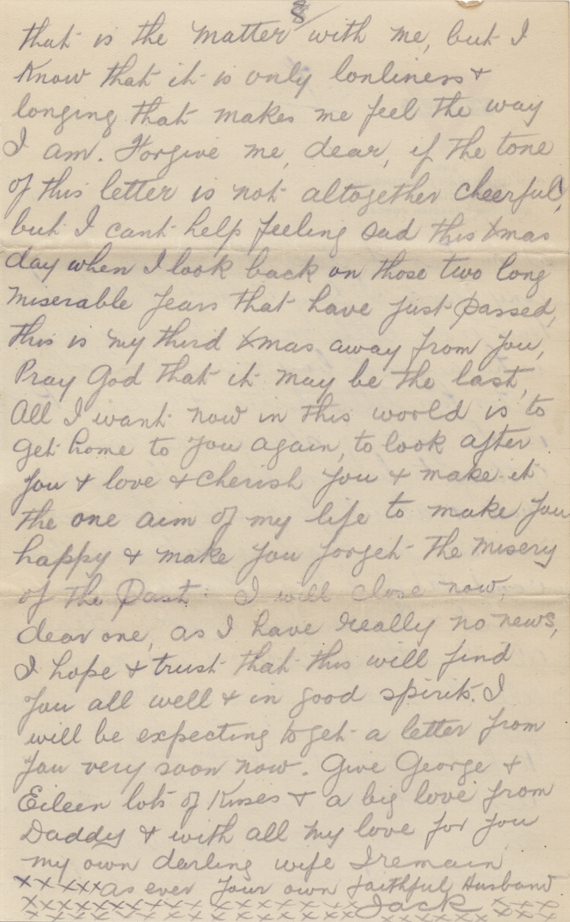 8
that is the matter with me, but I
know that it is only lonliness &
longing that makes me feel the way
I am. Forgive me, dear, if the tone
of this letter is not altogether cheerful,
but I cant help feeling sad this Xmas
day when I look back on those two long
miserable years that have just passed,
this is my third Xmas away from you,
Pray God that it may be the last,
All I want now in this world is to
get home to you again, to look after
you & love & cherish you & make it
the one aim of my life to make you
happy & make you forget the misery
of the Past. I will close now
dear one, as I have really no news,
I hope & trust that this will find
you all well & in good spirits. I
will be expecting to get a letter from
you very soon now. Give George &
Eileen lots of Kisses & a big love from
Daddy & with all my love for you
my own darling wife I remain
xxxxxx as ever your own faithful Husband
xxxxxxxxxxxxxxxxxxxx Jack xxx